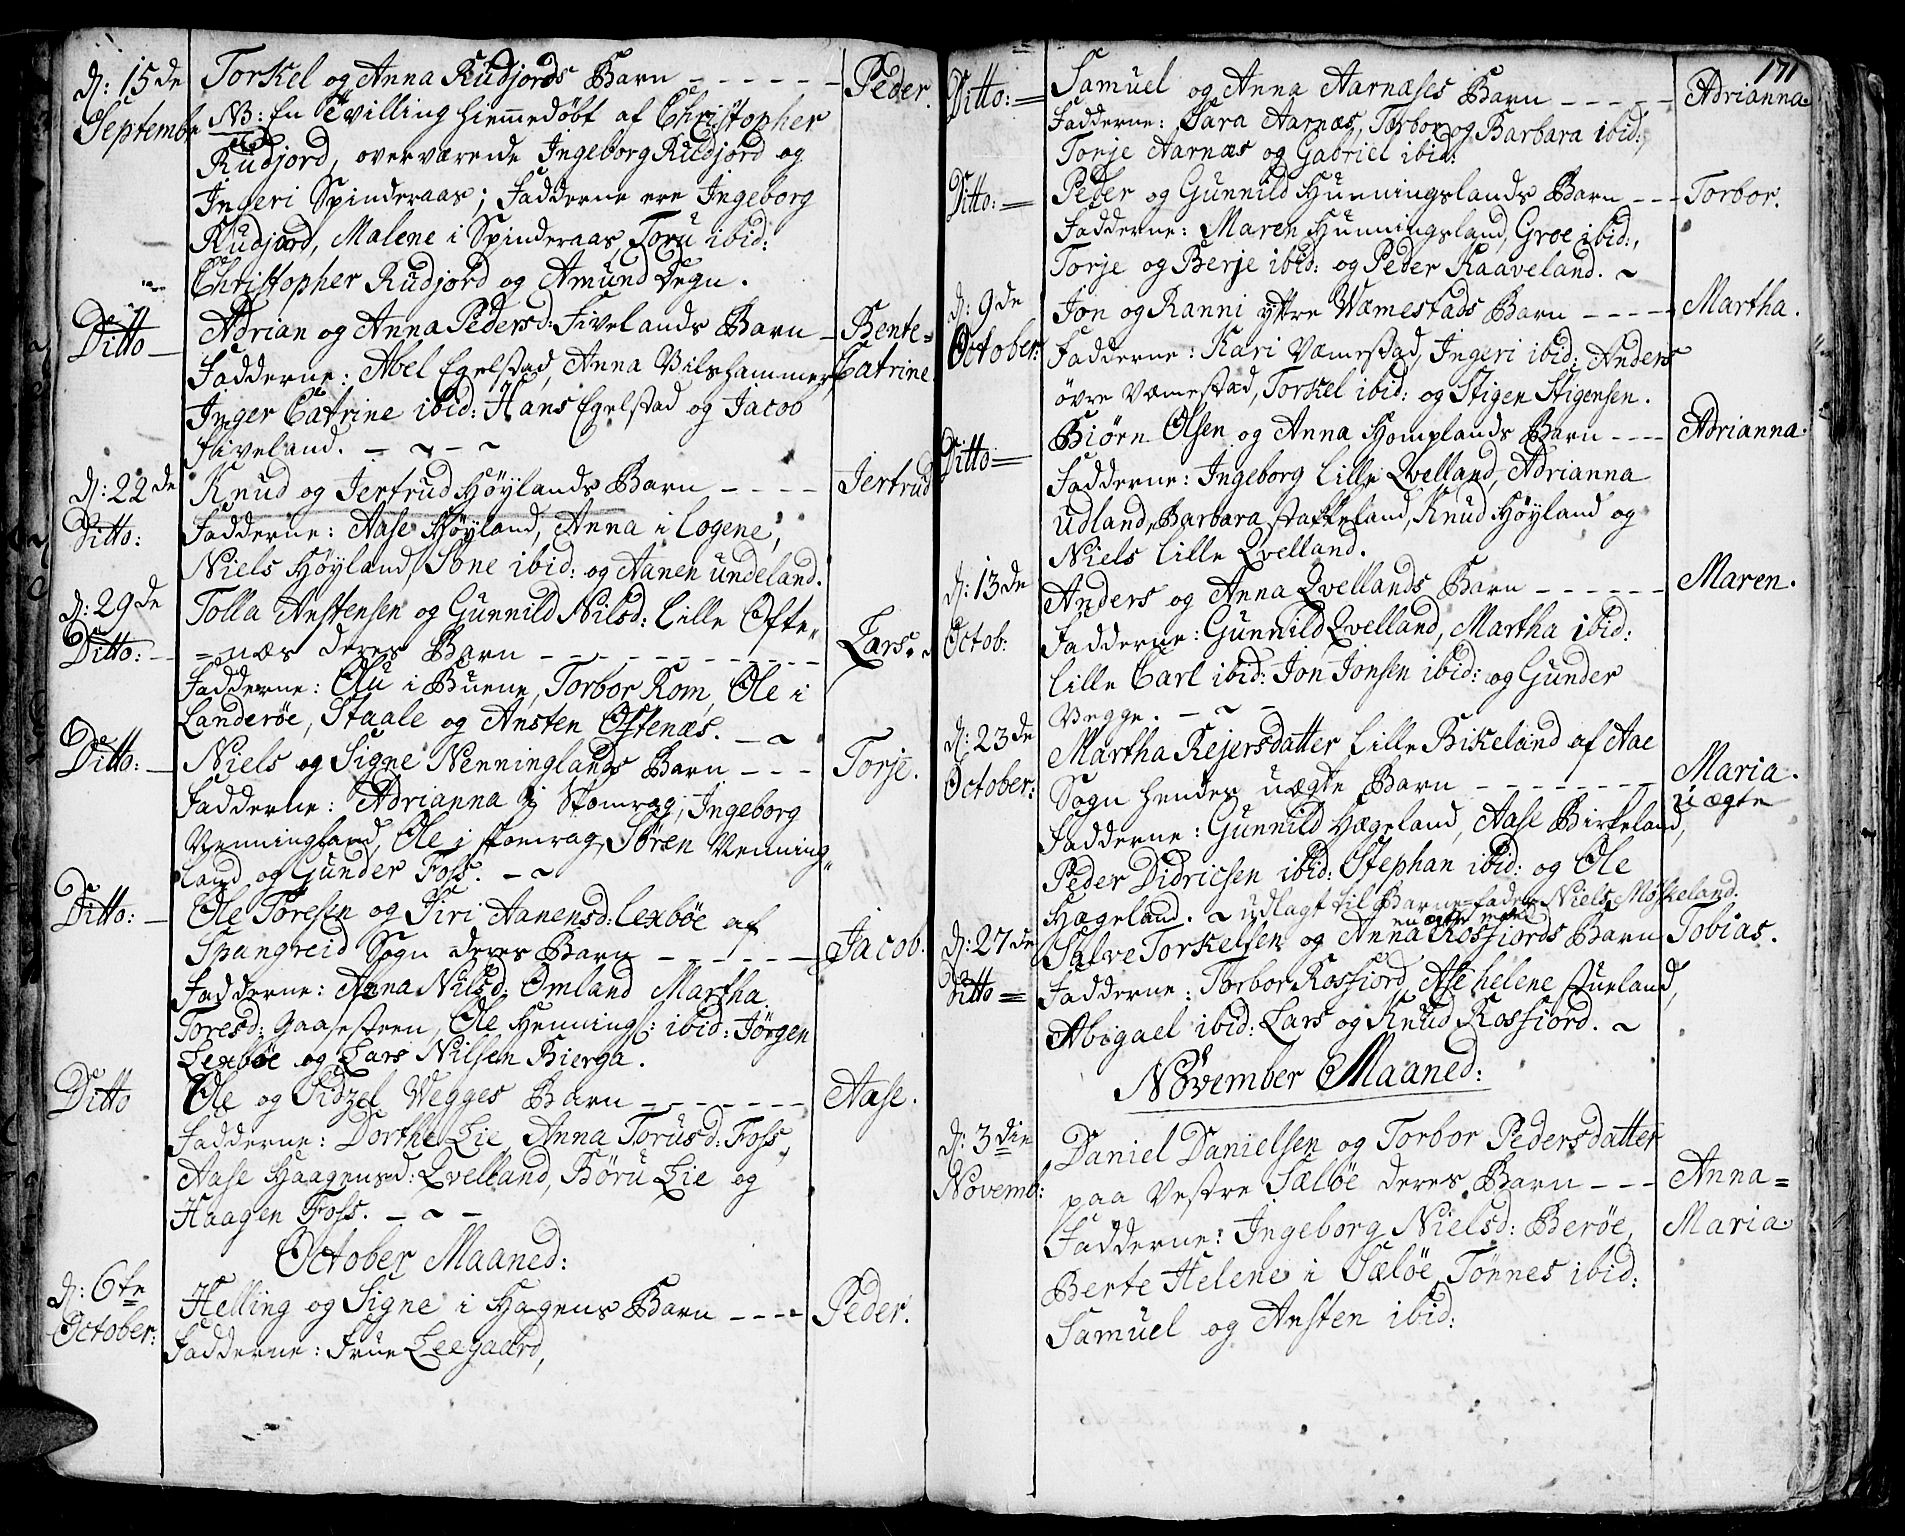 d: 15de Torkel og Anna Rudjords Barn - - - - - - Peder.
Septembr NB: En Tvilling hiemmedøbt af Christopher
Rudjord, overværende Ingeborg Rudjord og
Ingeri Spinderaas; Fadderne ere Ingeborg
Rudjord, Malene i Spinderaas Toru ibid:
Christopher Rudjord og Amund Degn.
Ditto — Adrian og Anna Pedersd: Fivelands Barn — Bente=
Fadderne: Abel Egelstad, Anna Vilshammer, Catrine
Inger Catrine ibid: Hans Egelstad og Jacob
Fiveland. — ~ — ~
d: 22de Knud og Jertrud Høylands Barn - - - - Jertrud
Ditto: Fadderne: Aase Høyland, Anna i Logene,
Niels Høyland, Sone ibid: og Aanen Undeland.
d: 29de Tolla Anstensen og Gunnild Nilsd: Lille Ofte„
Ditto: — =næs deres Barn - - - - - - - - - - Lars.
Fadderne: Olu i Buene, Torbor Rom, Ole i
Landerøe, Staale og Ansten Oftenæs. — ~
Ditto: — Niels og Signe Nenninglands Barn - - - Torje.
Fadderne: Adrianna i Skomrag, Ingeborg
Venningland, Ole i Skomrag, Søren Venning„
land og Gunder Foss. — ~
Ditto: — Ole Toresen og Siri Aanensd: Lexbøe af
Spangreid Sogn deres Barn - - - - - - Jacob.
Fadderne: Anna Nilsd: Omland Martha
Toresd: Gaasesteen, Ole Hennings: ibid: Jørgen
Lexbøe og Lars Nilsen Bierga.
Ditto Ole og Sidzel Vegges Barn - - - - - - - Aase.
Fadderne: Dorthe Lie, Anna Torusd: Foss,
Aase Haagensd: Qvelland, Børu Lie og
Haagen Foss. — ~ —
October Maaned:
d: 6te Helling og Signe i Hagens Barn - - - - Peder.
October: Fadderne: Frue Leegaard,
171
Ditto: = Samuel og Anna Aarnæses Barn - - - - - Adrianna.
Fadderne: Sara Aarnæs, Torbor og Barbara ibid:,
Torje Aarnæs og Gabriel ibid:
Ditto: = Peder og Gunnild Hunningslands Barn - - - Torbor.
Fadderne: Maren Hunningsland, Groe ibid:,
Torje og Berje ibid: og Peder Kaaveland. ~
d: 9de Jon og Ranni yttre Wæmestads Barn - - - - - Martha.
October: Fadderne: Kari Væmestad, Ingeri ibid: Anders
øvre Væmestad, Torkel ibid: og Stigen Stigensen.
Ditto = Biørn Olsen og Anna Homplands Barn - - - - Adrianna.
Fadderne: Ingeborg Lille Qvelland, Adrianna
Udland, Barbara Stakkeland, Knud Høyland og
Niels Lille Qvelland.
d: 13de Anders og Anna Qvellands Barn - - - - - - Maren.
Octob: Fadderne: Gunnild Qvelland, Martha ibid:
Lille Carl ibid: Jon Jonsen ibid: og Gunder
Vegge. — ~ —
d: 23de Martha Rejersdatter Lille Birkeland af Aae
October: Sogn hendes uægte Barn - - - - - - - Maria.
uægte
Fadderne: Gunnild Hægeland, Aase Birkeland,
Peder Didricsen ibid: Stephan ibid: og Ole
Hægeland. ~ udlagt til Barne-fader Niels Møskeland.
d: 27de Salve Torkelsen og Anna Rosfiords Barn Tobias.
Ditto = Fadderne: Torbor Rosfiord, Ase helene Stueland,
Abigael ibid: Lars og Knud Rosfiord. ~
November Maaned:
d: 3die Daniel Danielsen og Torbor Pedersdatter
Novemb: paa Vestre Sæløe deres Barn - - - Anna=
Fadderne: Ingeborg Nielsd: Berøe, Maria.
Berte Helene i Sæløe, Tønnes ibid:
Samuel og Ansten ibid: